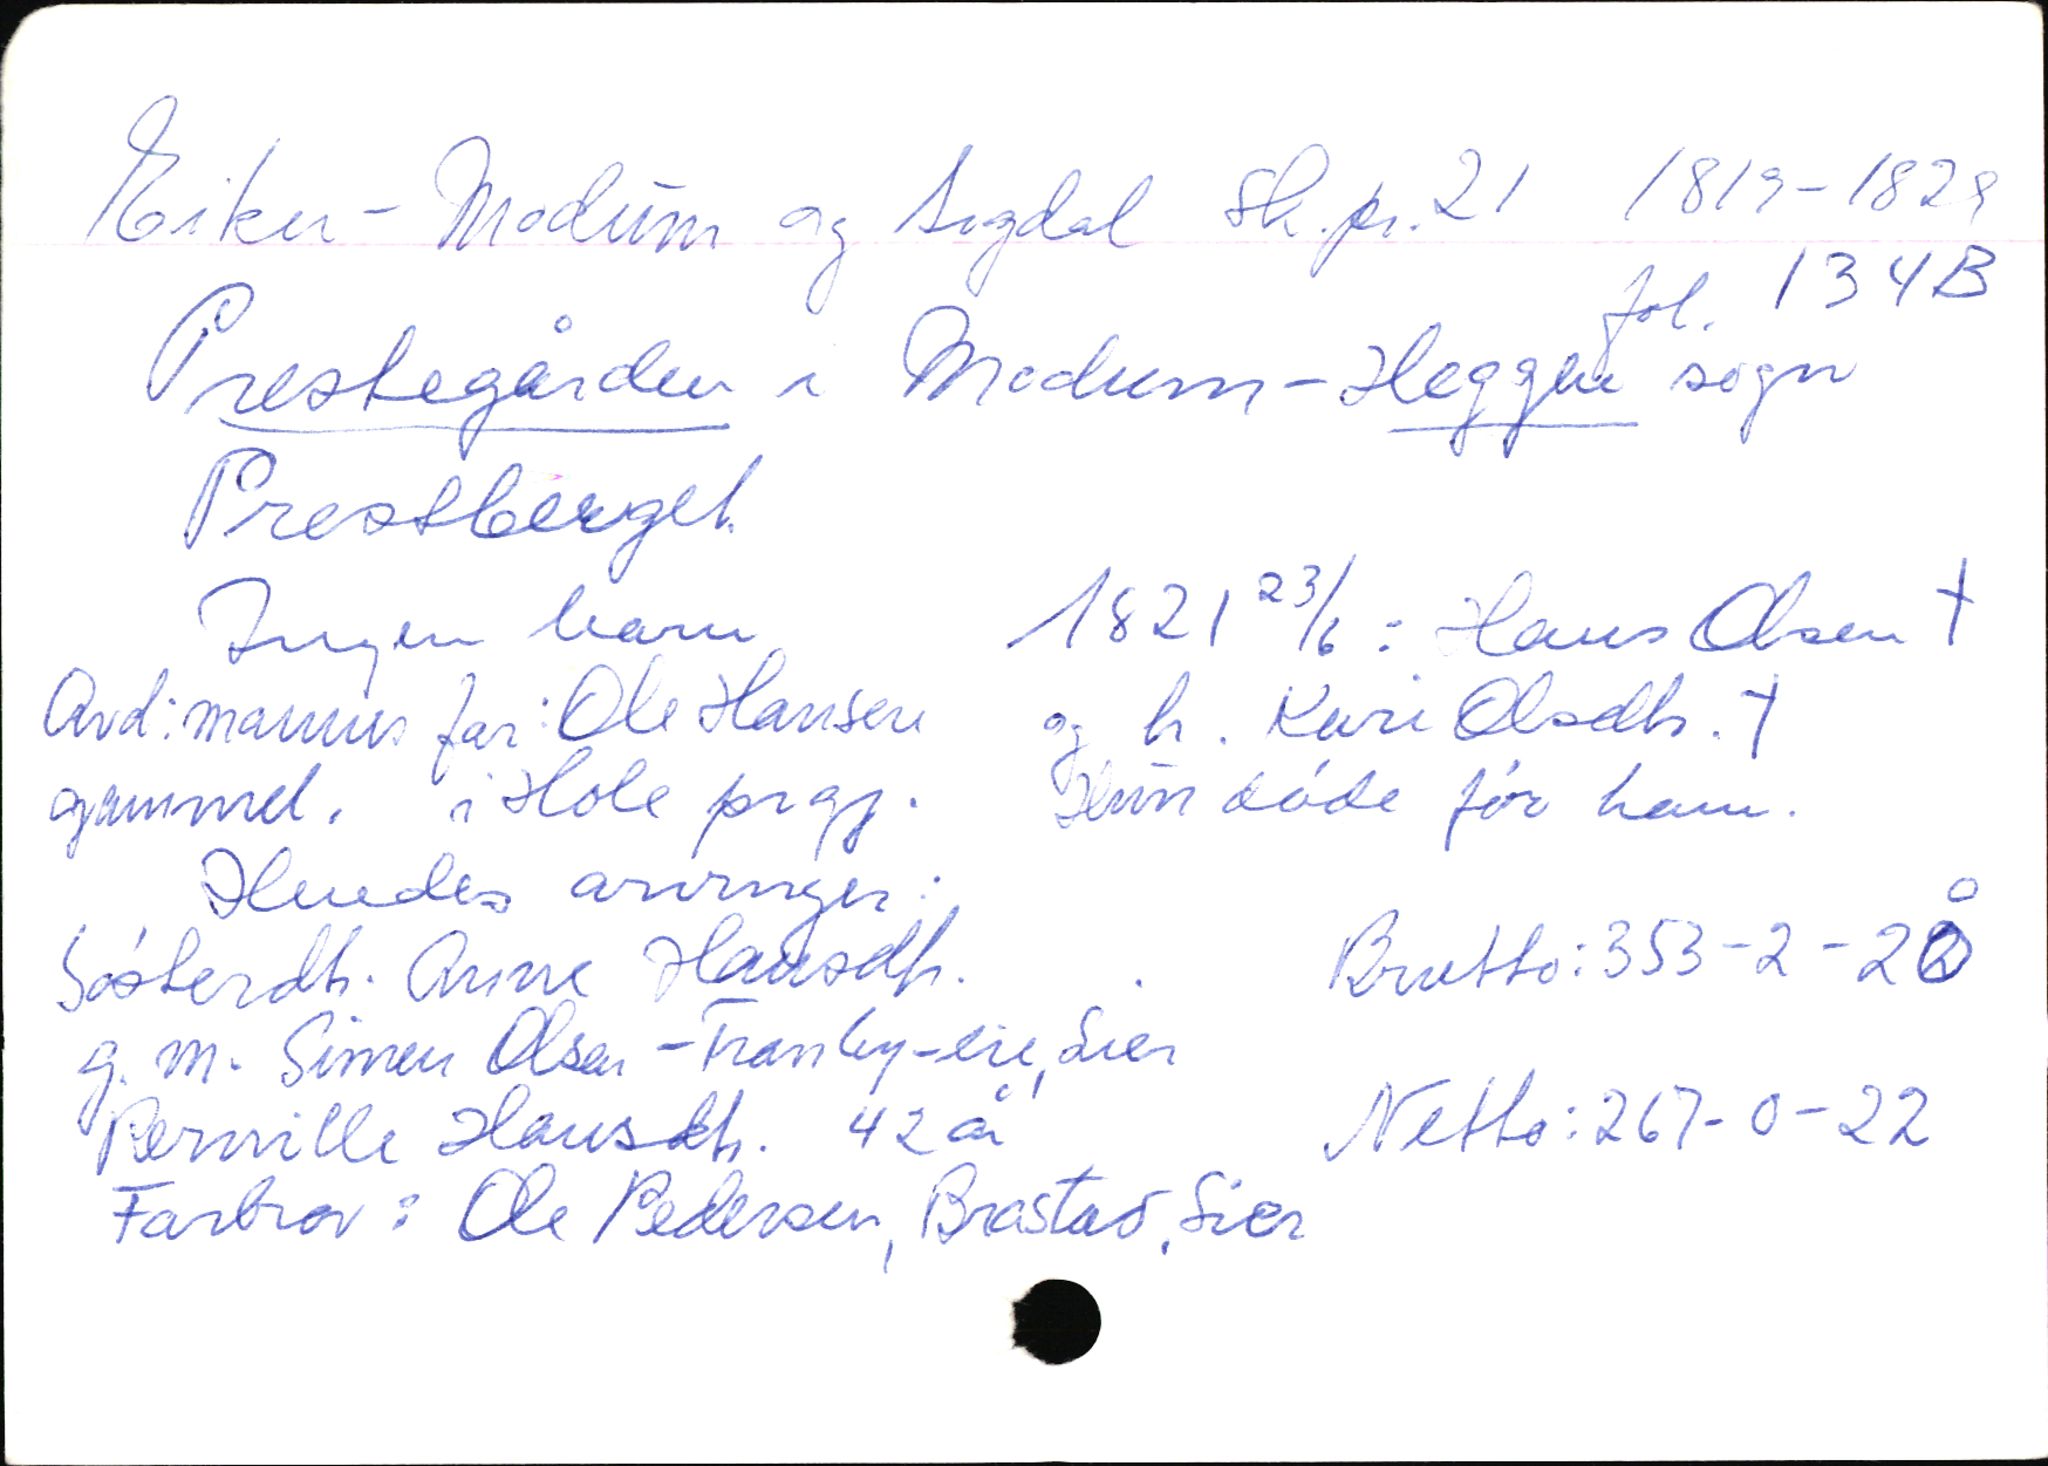 Eiker - Modum og Sigdal Sk.pr. 21 1819-1829
fol. 134B
Prestegården i Modum - Heggen sogn
Prestberget.
Ingen barn 1821 23/6: Hans Olsen †
Arv: mannens far: Ole Hansen og h. Kari Olsdtr. †
gammel. i Hole prgj. Hun døde før ham.
Hendes arvinger:
Søsterdtr. Anne Hansdtr. Brutto: 353-2-20
g. m. Simen Olsen - Tranby-eie, Lier
Pernille Hansdtr. 42 år Netto: 267-0-22
Farbror: Ole Pedersen, Brastad, Lier